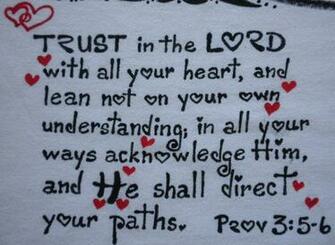 TRUST in the LORD
with all your heart, and
lean not on your own
understanding; in all your
ways acknowledge Him,
and He shall direct
your paths. Prov 3:5-6